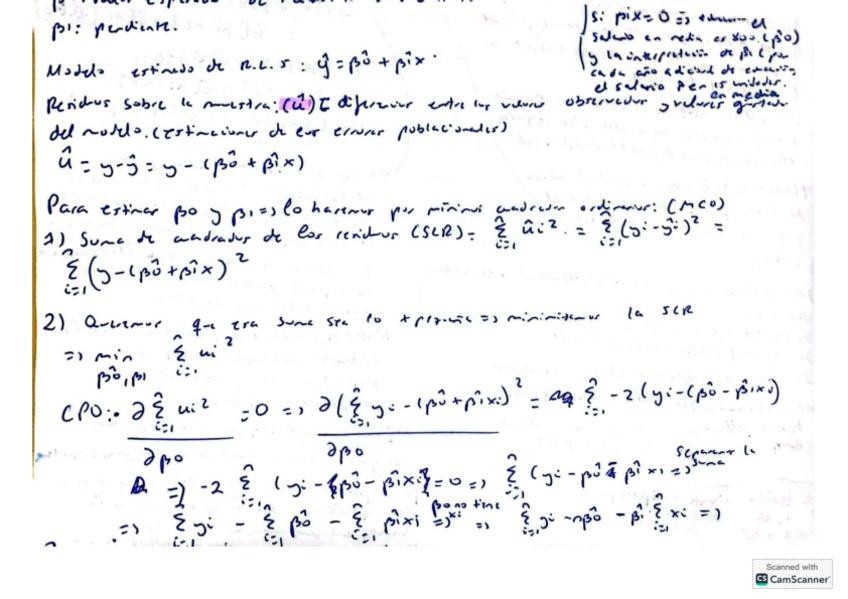 β1: pendiente.
si β1x = 0 => el
salario en media es 800. (β0)
y la interpretación de β1 es por
cada año adicional de educación
el salario en 15 unidades.
en media
Modelo estimado de R.L.S: ŷ = β̂0 + β̂1x.
Residuos sobre la muestra: (û) diferencias entre los valores observados y valores ajustados
del modelo. (estimaciones de los errores poblacionales)
û = y - ŷ = y - (β̂0 + β̂1x)
Para estimar β0 y β1 => lo haremos por mínimos cuadrados ordinarios: (MCO)
1) Suma de cuadrados de los residuos (SCR) = Σ(i=1, n) ûi² = Σ(i=1, n) (yi - ŷi)² =
Σ(i=1, n) (y - (β̂0 + β̂1x)²
2) Queremos que esa suma sea lo + pequeña => minimizamos la SCR
=> min Σ(i=1, n) ui²
β̂0, β1
CPO: ∂ Σ(i=1, n) ui² / ∂β0 = 0 => ∂(Σ(i=1, n) yi - (β̂0 + β̂1xi)² / ∂β0 = Σ(i=1, n) -2 (yi - (β̂0 - β̂1xi)
=> -2 Σ(i=1, n) (yi - β̂0 - β̂1xi) = 0 => Σ(i=1, n) (yi - β̂0 - β̂1x) => Separamos la suma
=> Σ(i=1, n) yi - Σ(i=1, n) β̂0 - Σ(i=1, n) β̂1xi => β0 no tiene xi => Σ(i=1, n) yi - nβ̂0 - β̂1 Σ(i=1, n) xi =>
Scanned with
CS CamScanner